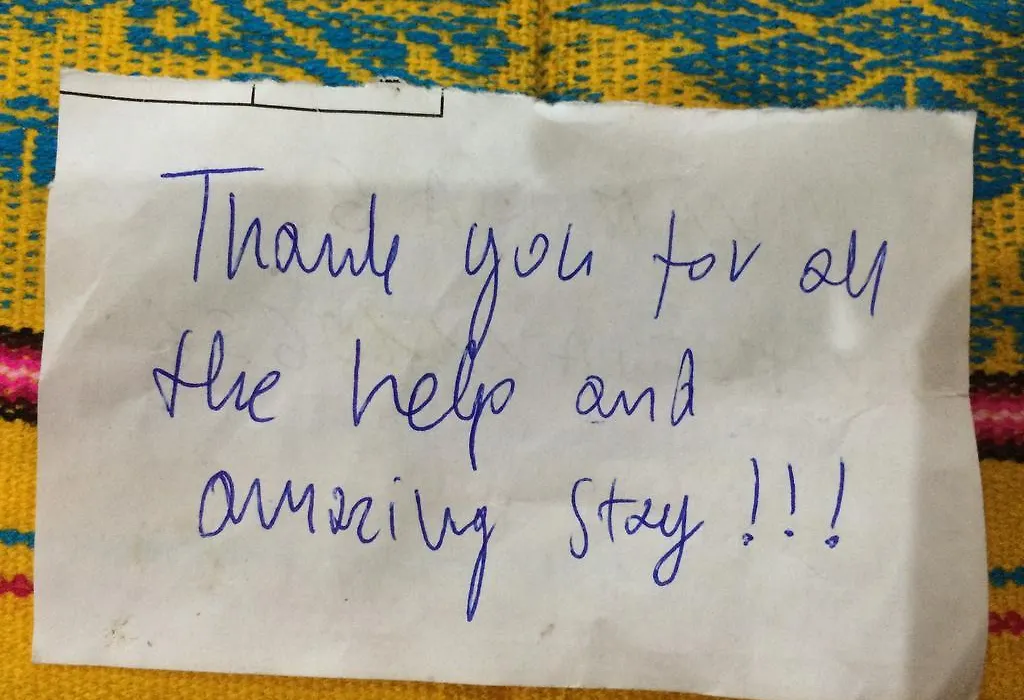 Thank you for all
the help and
amazing stay!!!